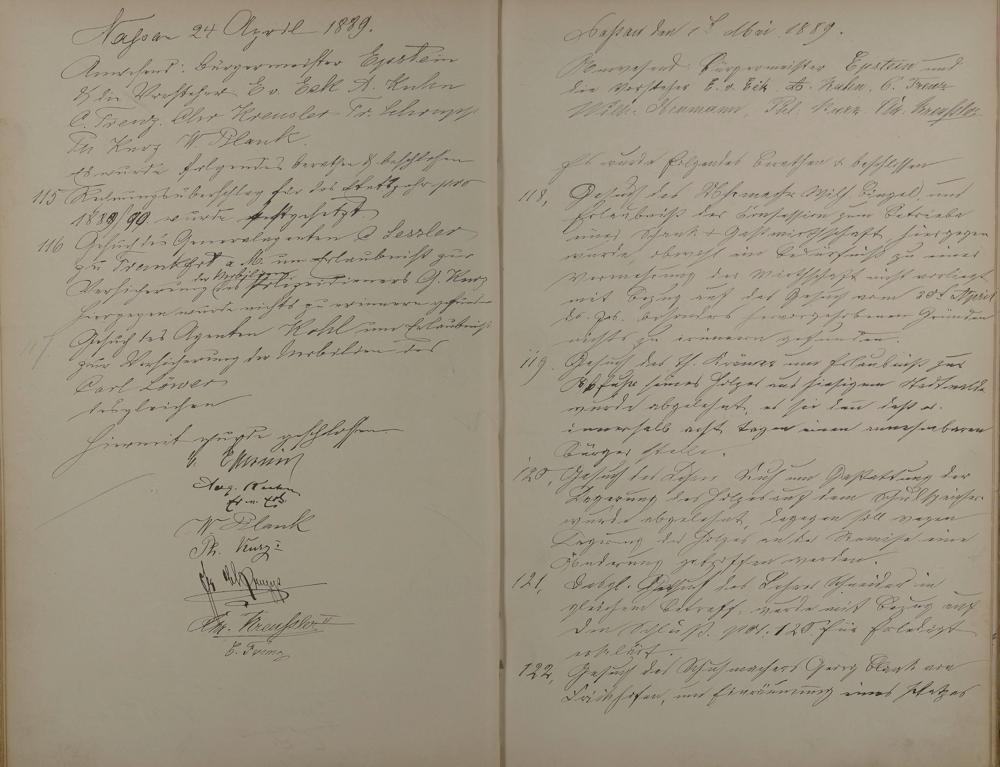 Nassau 24 April 1889.
Anwesend: Bürgermeister Epstein
& die Vorsteher E v. Eck A. Kuhn
C. Trenz. Chr Kreusler Fr. Schrupp
Ph Kurz W. Plank.
Es wurde folgendes berathen & beschlossen
115 Rechnungsüberschlag für das Etatsjahr pro
1889/90 wurde festgesetzt
116 Gesuch des Generalagenten Leszler
zu Frankfurt a. M. um Erlaubniß zur
Versicherung der Mobilien des Polizeidieners G. Kurz
hiergegen wurde nichts zu erinnern gefunden
117 Gesuch des Agenten Kohl um Erlaubniß
zur Versicherung der Mobilien des
Carl Löwer
desgleichen
Hiermit wurde geschlossen
Epstein
Aug. Kuhn
E. v. Eck
W Plank
Ph. Kurz
Chr. Kreusler II
C. Trenz
Nassau den 1t Mai 1889.
Anwesend Bürgermeister Epstein und
die Vorsteher E. v. Eck, A. Kuhn, C. Trenz
Wilh. Phl. Kurz Chr. Kreusler
Es wurde folgendes berathen & beschlossen
118, Gesuch des Wilh und
Erlaubniß der Concession zum Betriebe
einer Schank & Gastwirthschaft, hiergegen
wurde, obwohl ein Bedürfniß zu einer
Vermehrung der Wirthschaft nicht vorliegt
mit Bezug auf das Gesuch vom 30t April
ds. Js. besonders hervorgehobenen Gründen
nichts zu erinnern gefunden.
119. Gesuch des um Erlaubniß zur
Abfuhr seines Holzes aus hiesigem Stadtwalde
wurde abgelehnt, es sei denn daß er
innerhalb acht Tagen einen annehmbaren
Bürgen stelle.
120, Gesuch des Lehrer um Gestattung der
Lagerung des Holzes auf dem Schulspeicher
wurde abgelehnt, dagegen soll wegen
Lagerung des Holzes in der Remise eine
Änderung getroffen werden.
121, Desgl. Gesuch des Lehrer Schneider in
gleichem Betreff, wurde mit Bezug auf
den Beschluß pos. 120 für erledigt
erklärt.
122, Gesuch des Schuhmachers Georg von
um Einräumung eines Platzes